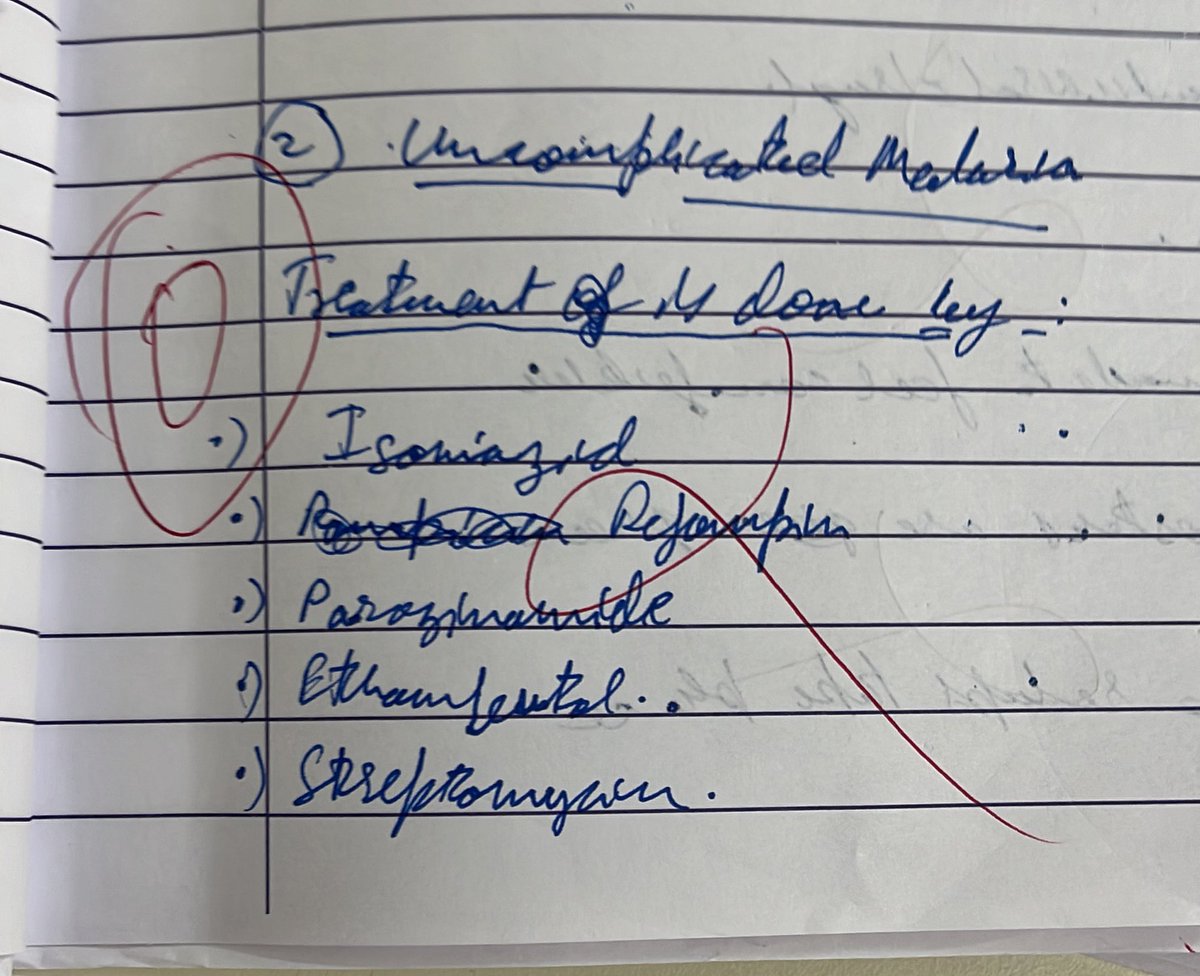 2) . Uncomplicated Malaria
Treatment of is done by - :
•) Isoniazid
•) Refampin
•) Parazinamide
•) Ethambutal . .
•) Streptomycin .
0